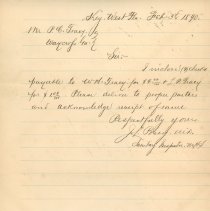 Key West Fla. Feb 3d 1890.
Mr P. C. Tracy
Waycross Ga
Sir:-
I inclose
payable to W. H. Tracy for $ & L. P. Tracy
for $ Please deliver to proper parties
and acknowledge receipt of same
Respectfully yours
J. L.
Sanitary Inspector